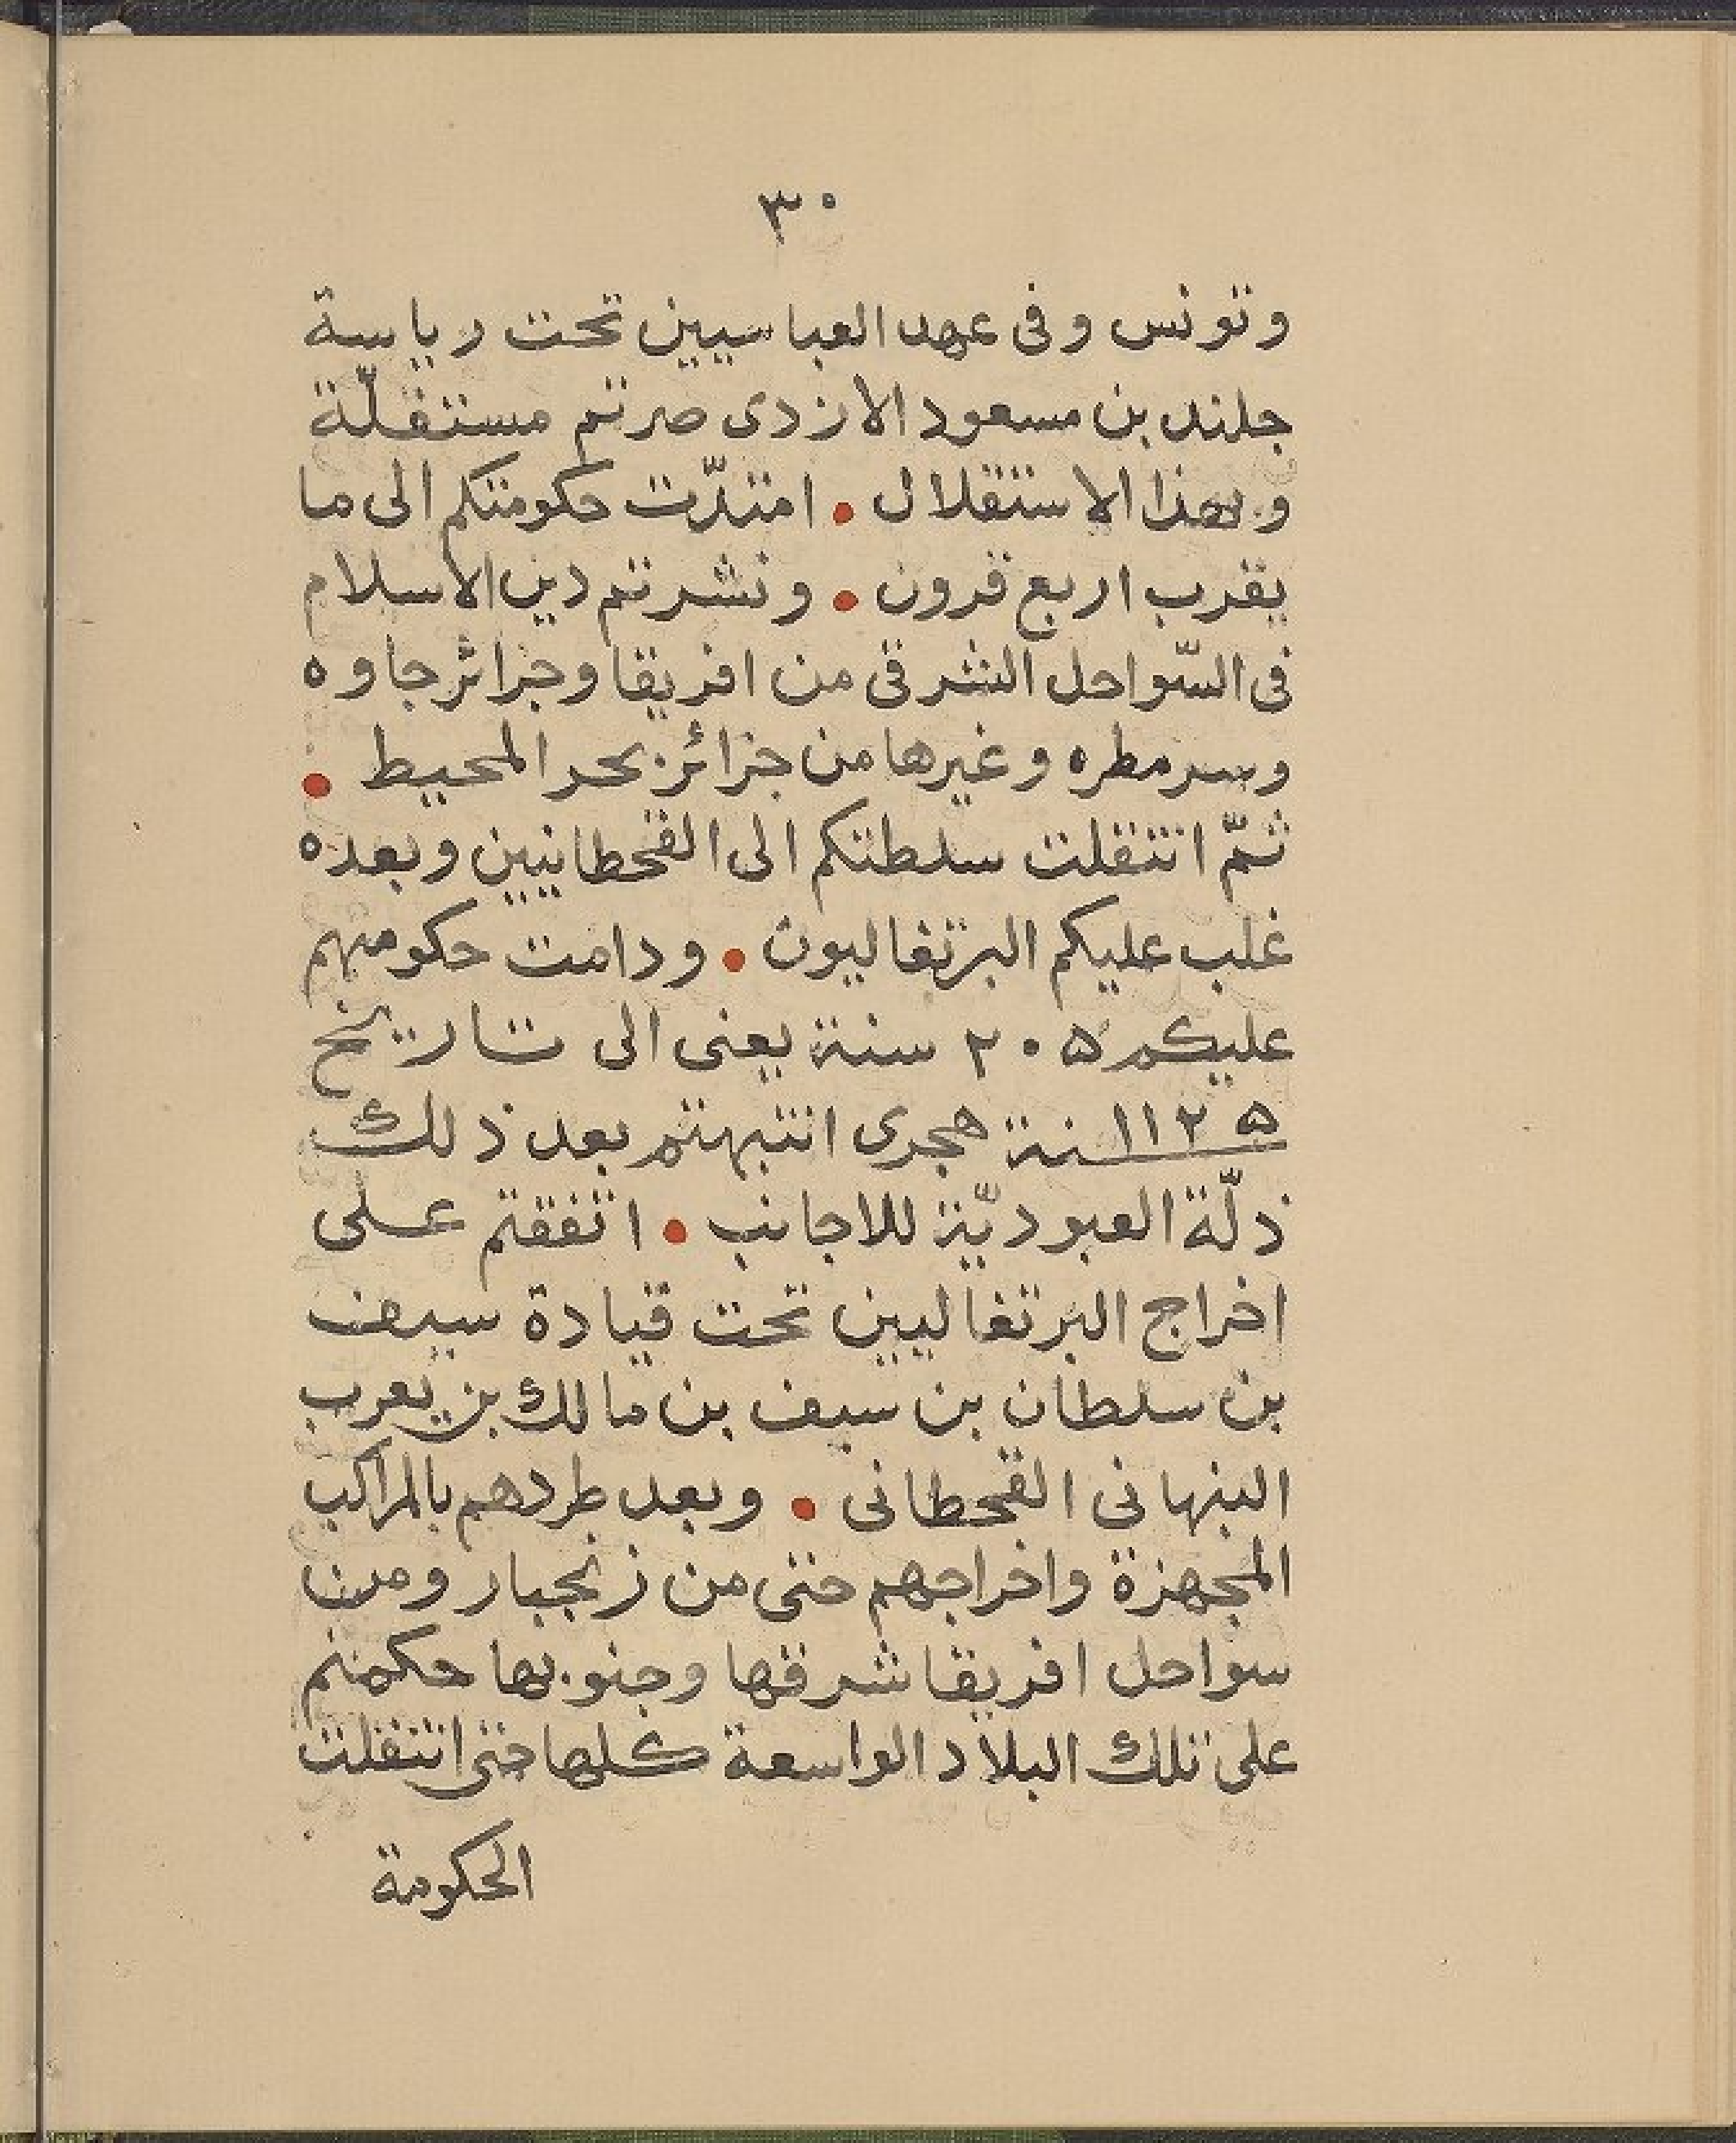 ٣٠
وتونس وفى عهد العباسيين تحت رياسة
جلند بن مسعود الازدى صرتم مستقلّة
وبهذا الاستقلال • امتدّت حكومتكم الى ما
يقرب اربع قرون • ونشرتم دين الاسلام
فى السّواحل الشرقى من افريقا وجزائر جاوه
وسرمطره وغيرها من جزائر بحر المحيط •
ثمّ انتقلت سلطتكم الى القحطانيين وبعده
غلب عليكم البرتغاليون • ودامت حكومتهم
عليكم ٢٠٥ سنة يعنى الى تاريخ
١١٢٥ سنة هجرى انتبهتم بعد ذلك
ذلّة العبوديّة للاجانب • اتفقتم على
اخراج البرتغاليين تحت قيادة سيف
بن سلطان بن سيف بن مالك بن يعرب
النبهانى القحطانى • وبعد طردهم بالمراكب
المجهزة واخراجهم حتى من زنجبار ومن
سواحل افريقا شرقها وجنوبها حكمتم
على تلك البلاد الواسعة كلها حتى انتقلت
الحكومة